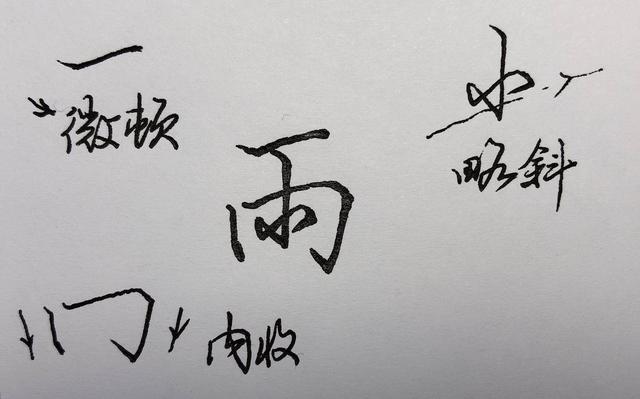 一
微顿
雨
小
略斜
冂
内收